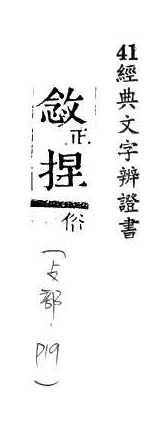 41經典文字辨證書
敜正
捏俗
(攴部.P19)